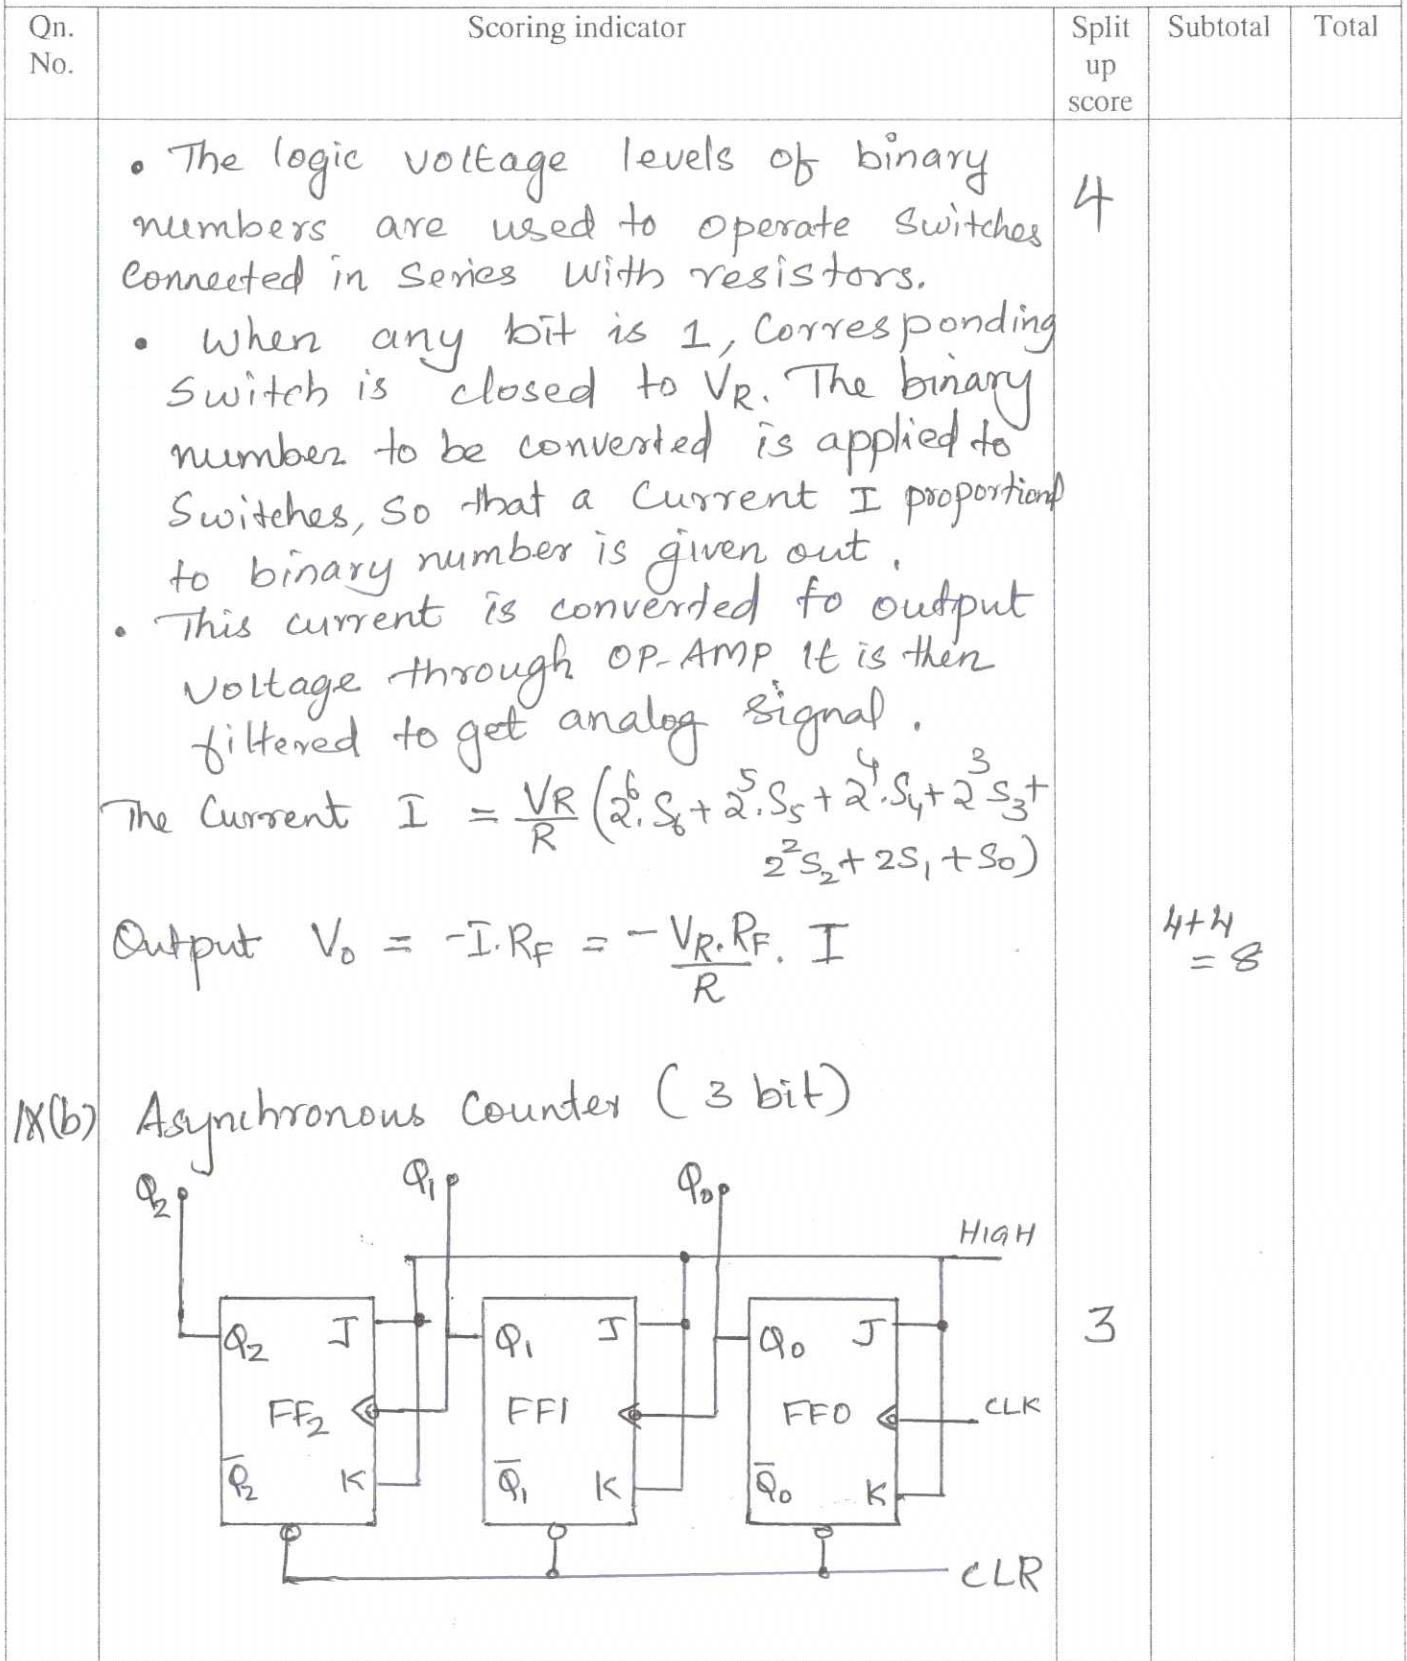 Qn. No.
Scoring indicator
Split up score
Subtotal
Total
• The logic voltage levels of binary
numbers are used to operate switches
connected in series with resistors.
• When any bit is 1, Corresponding
switch is closed to VR. The binary
number to be converted is applied to
Switches, so that a current I proportional
to binary number is given out.
• This current is converted to output
voltage through OP-AMP It is then
filtered to get analog signal.
4
The Current I = VR/R (2⁶.S₆ + 2⁵.S₅ + 2⁴.S₄ + 2³S₃ +
2²S₂ + 2S₁ + S₀)
Output V₀ = -I.RF = - VR.RF/R . I
4+4
= 8
IX(b) Asynchronous Counter (3 bit)
Q₂ Q₁ Q₀
HIGH
Q₂ J Q₁ J Q₀ J
3
FF₂ FF1 FF0 CLK
Q̅₂ K Q̅₁ K Q̅₀ K
CLR